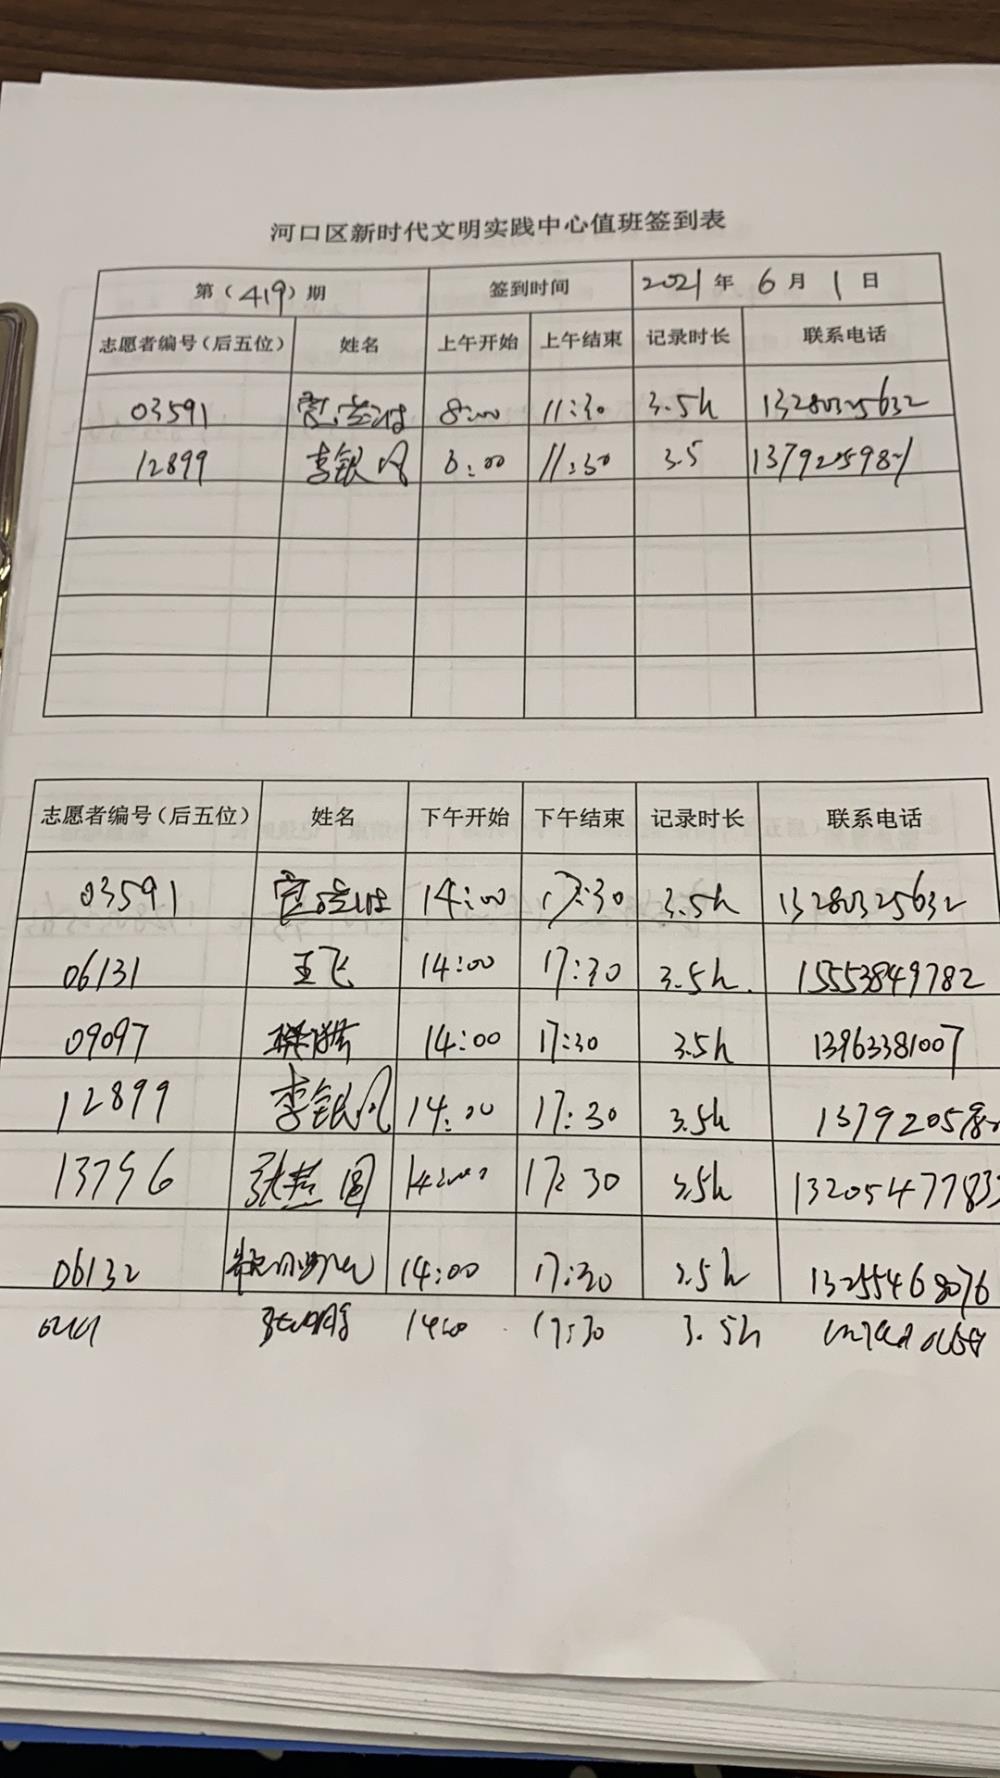 河口区新时代文明实践中心值班签到表
第（419）期 签到时间 2021年 6月 1日
志愿者编号（后五位） 姓名 上午开始 上午结束 记录时长 联系电话
03591 8:00 11:30 3.5h 13280325632
12899 李银凤 8:00 11:30 3.5
志愿者编号（后五位） 姓名 下午开始 下午结束 记录时长 联系电话
03591 14:00 17:30 3.5h 13280325632
06131 王飞 14:00 17:30 3.5h. 15553849782
09097 14:00 17:30 3.5h 13963381007
12899 李银凤 14:00 17:30 3.5h
13796 张燕圆 14:00 17:30 3.5h
06132 14:00 17:30 3.5h 13255468076
14:00 17:30 3.5h